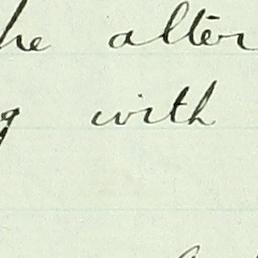 he alter
g with